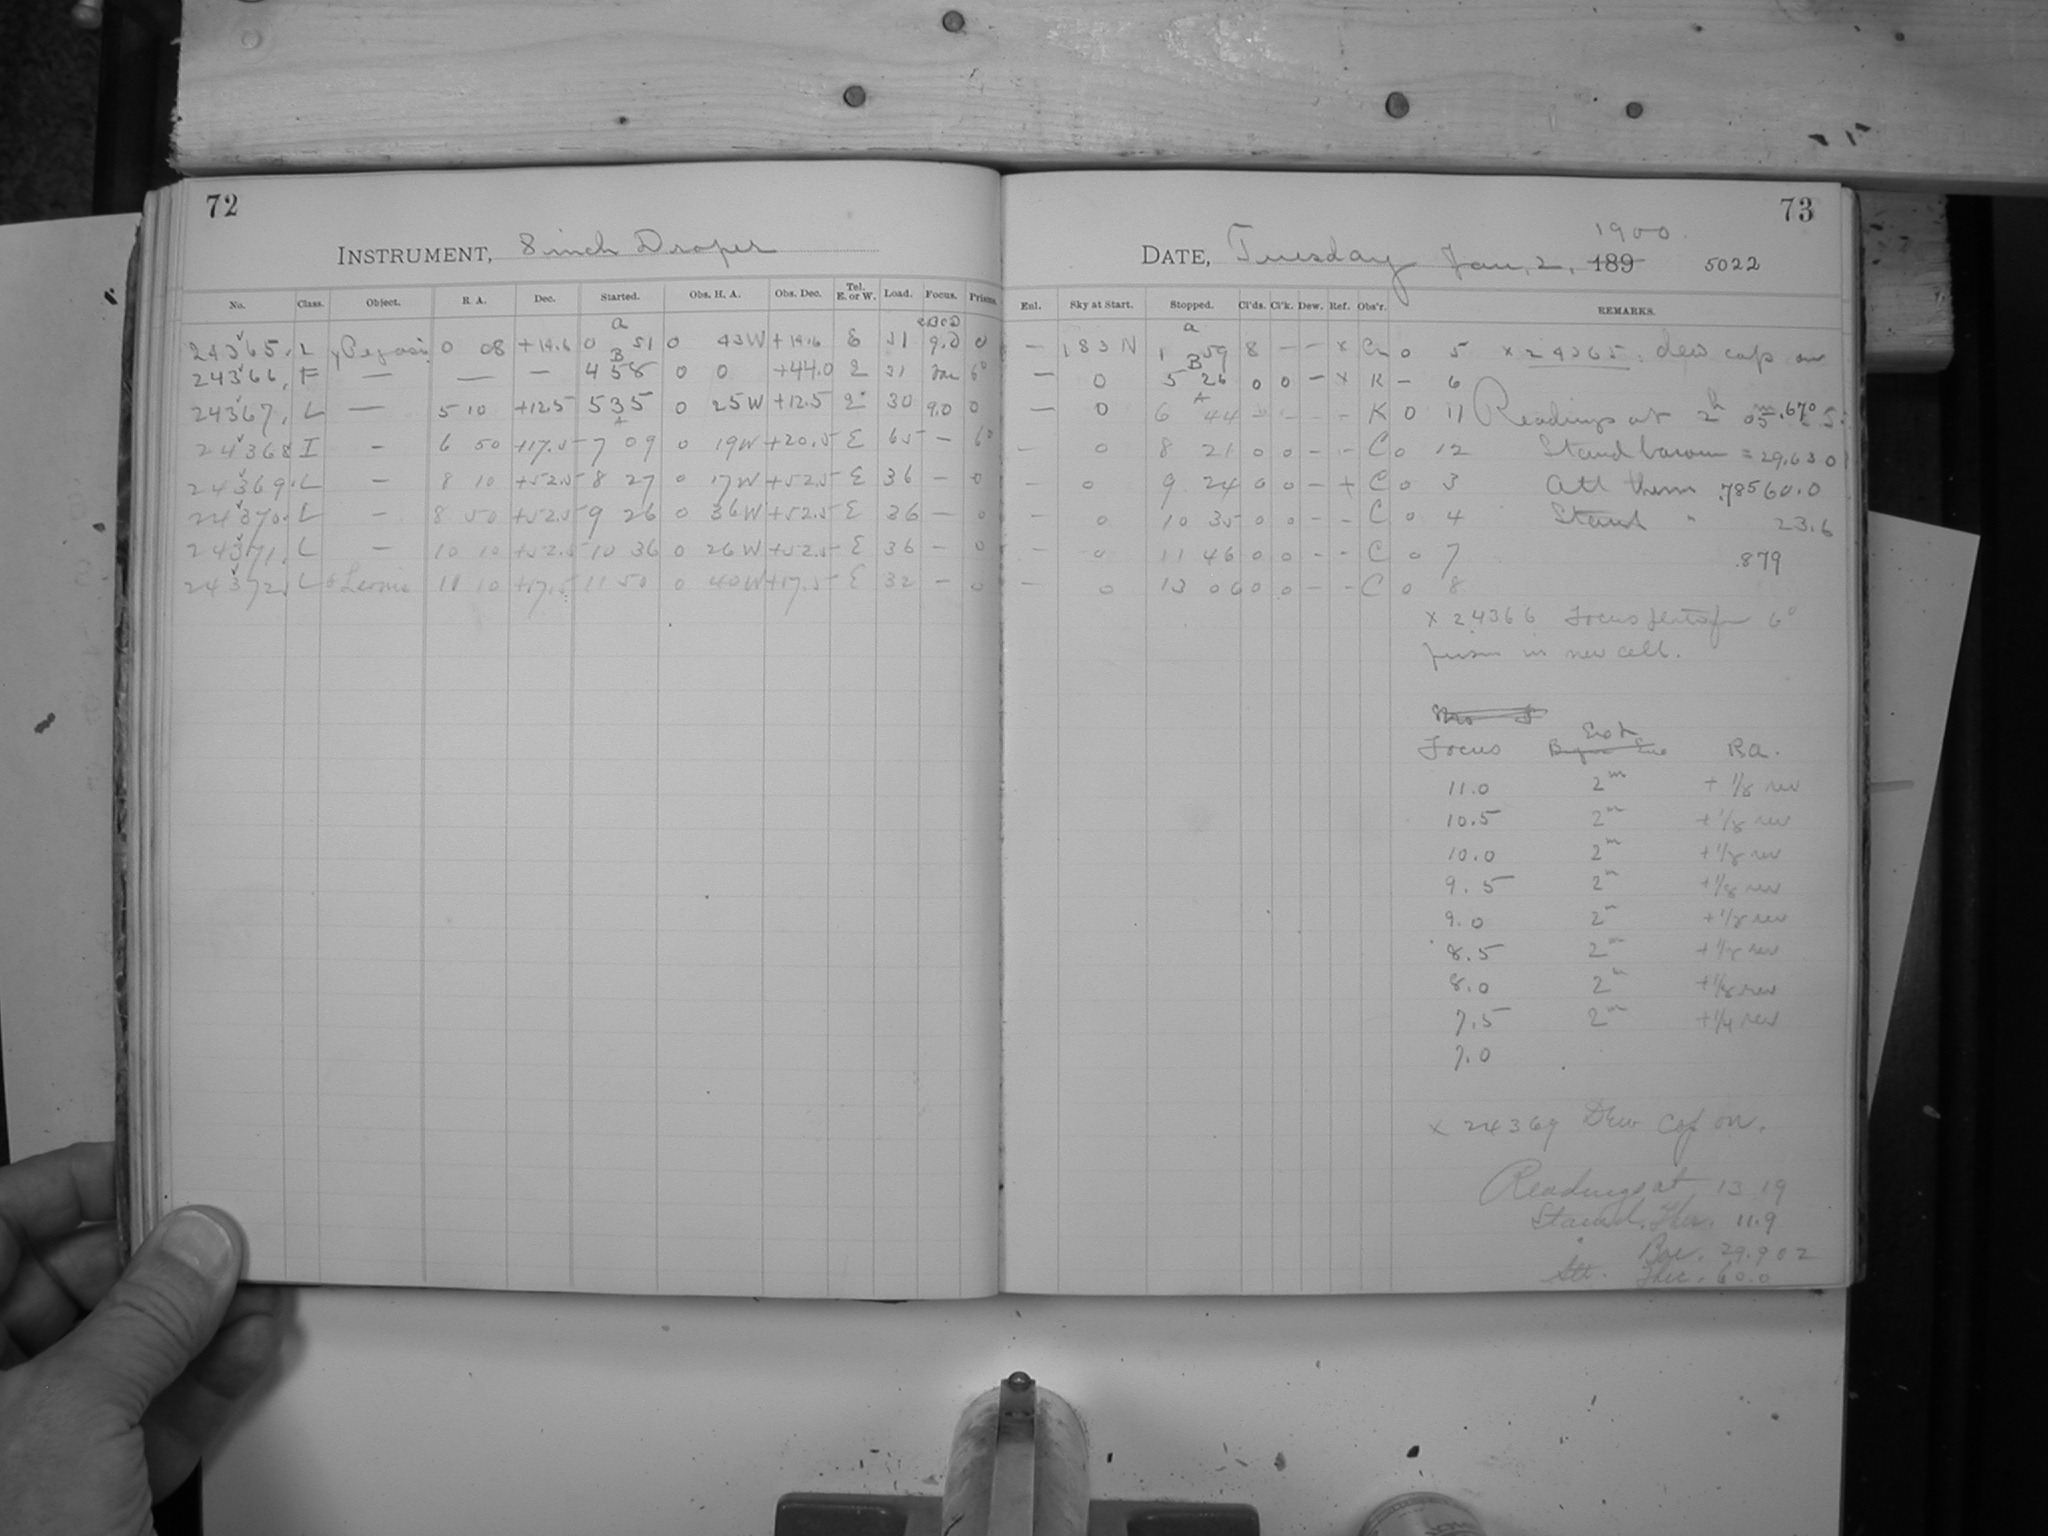 72
INSTRUMENT, 8 inch Draper
No. Class. Object. R. A. Dec. Started. Obs. H. A. Obs. Dec. Tel. E. or W. Load. Focus. Prisms.
24365. L γ Pegasi 0 08 +14.6 a 0 51 0 43W +14.6 E 31 9.0 0
24366. F — — — B 4 58 0 0 +44.0 31 6°
24367. L — 5 10 +12.5 5 35 0 25W +12.5 30 9.0 0
24368 I — 6 50 +17.5 A 7 09 0 19W +20.5 E 65 — 6°
24369. L — 8 10 +52.5 8 27 0 17W +52.5 E 36 — 0
24370. L — 8 50 +52.5 9 26 0 36W +52.5 E 36 — 0
24371. L — 10 10 +52.5 10 36 0 26W +52.5 E 36 — 0
24372. L Leonis 11 10 +17.5 11 50 0 40W +17.5 E 32 — 0
73
1900
DATE, Tuesday Jan. 2, 189 5022
Enl. Sky at Start. Stopped. Cl'ds. Cl'k. Dew. Ref. Obs'r. REMARKS.
— 183 N a 1 59 8 — — x 0 5 x 24365: dew cap on
— 0 B 5 26 0 0 — x K — 6
— 0 A 6 44 — — — K 0 11 Readings at 2h 05m
— 0 8 21 0 0 — — C 0 12 Stand barom = 29.630
— 0 9 24 0 0 — + C 0 3 Att therm 60.0
— 0 10 35 0 0 — — C 0 4 Stand " 23.6
— 0 11 46 0 0 — — C 0 7 .879
— 0 13 06 0 0 — — C 0 8
x 24366 Focus plate for 6°
prism in new cell.
Focus Exp R.A.
11.0 2m + 1/8 rev
10.5 2m + 1/8 rev
10.0 2m + 1/8 rev
9.5 2m + 1/8 rev
9.0 2m + 1/8 rev
8.5 2m + 1/8 rev
8.0 2m + 1/8 rev
7.5 2m + 1/4 rev
7.0
x 24369 Dew Cap on.
Readings at 13 19
Stand. Ther. 11.9
" Bar. 29.902
Att. Ther. 60.0